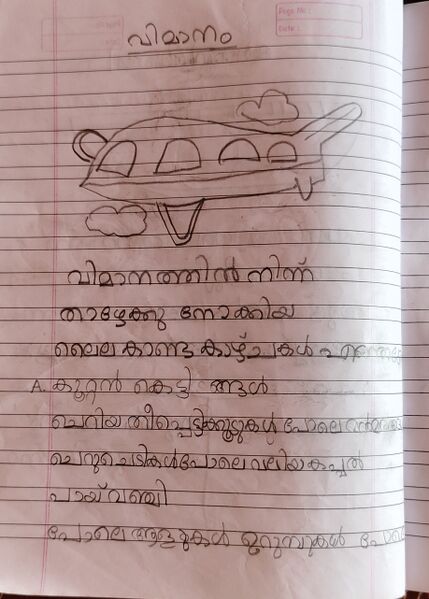 Page No :
Date :
വിമാനം
വിമാനത്തിൽ നിന്ന്
താഴേക്കു നോക്കിയ
ലൈല കണ്ട കാഴ്ചകൾ
A. കൂറ്റൻ കെട്ടി ങ്ങൾ
ചെറിയ തീപ്പെട്ടിക്കൂടുകൾ പോലെ
ചെറുചെടികൾപോലെ വലിയ കപ്പൽ
പായ് വഞ്ചി
പോലെ ആളുകൾ ഉറുമ്പുകൾ പോലെ